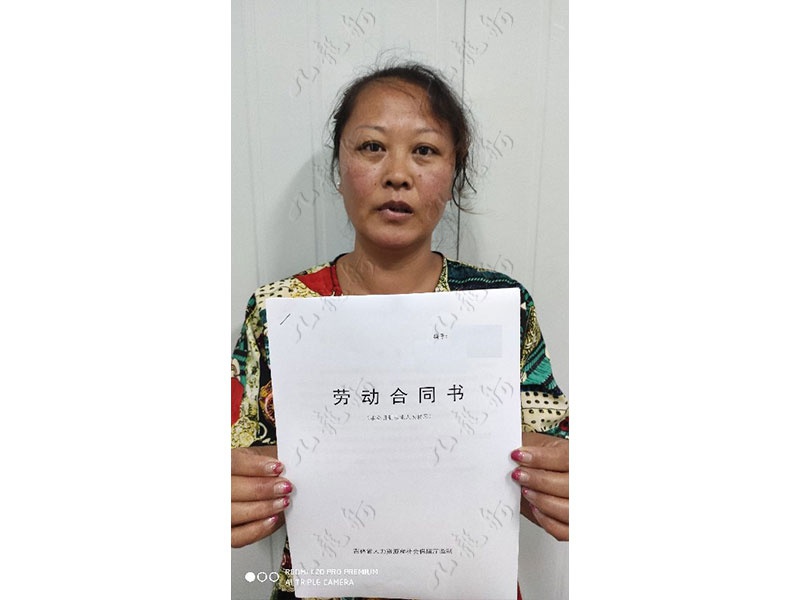 编号:
劳动合同书
吉林省人力资源和社会保障厅监制
REDMI K20 PRO PREMIUM
AI TRIPLE CAMERA